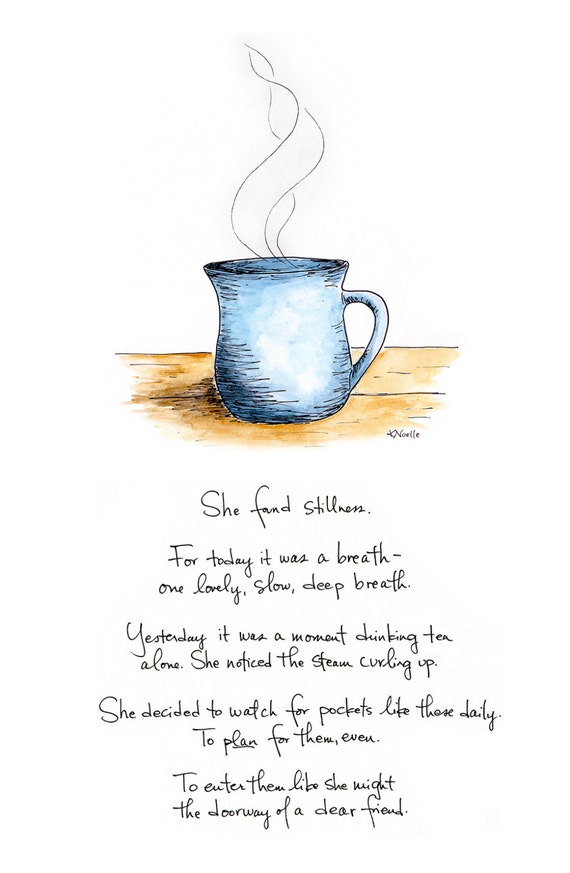 KNoelle
She found stillness.
For today it was a breath–
one lovely, slow, deep breath.
Yesterday it was a moment drinking tea
alone. She noticed the steam curling up.
She decided to watch for pockets like these daily.
To plan for them, even.
To enter them like she might
the doorway of a dear friend.